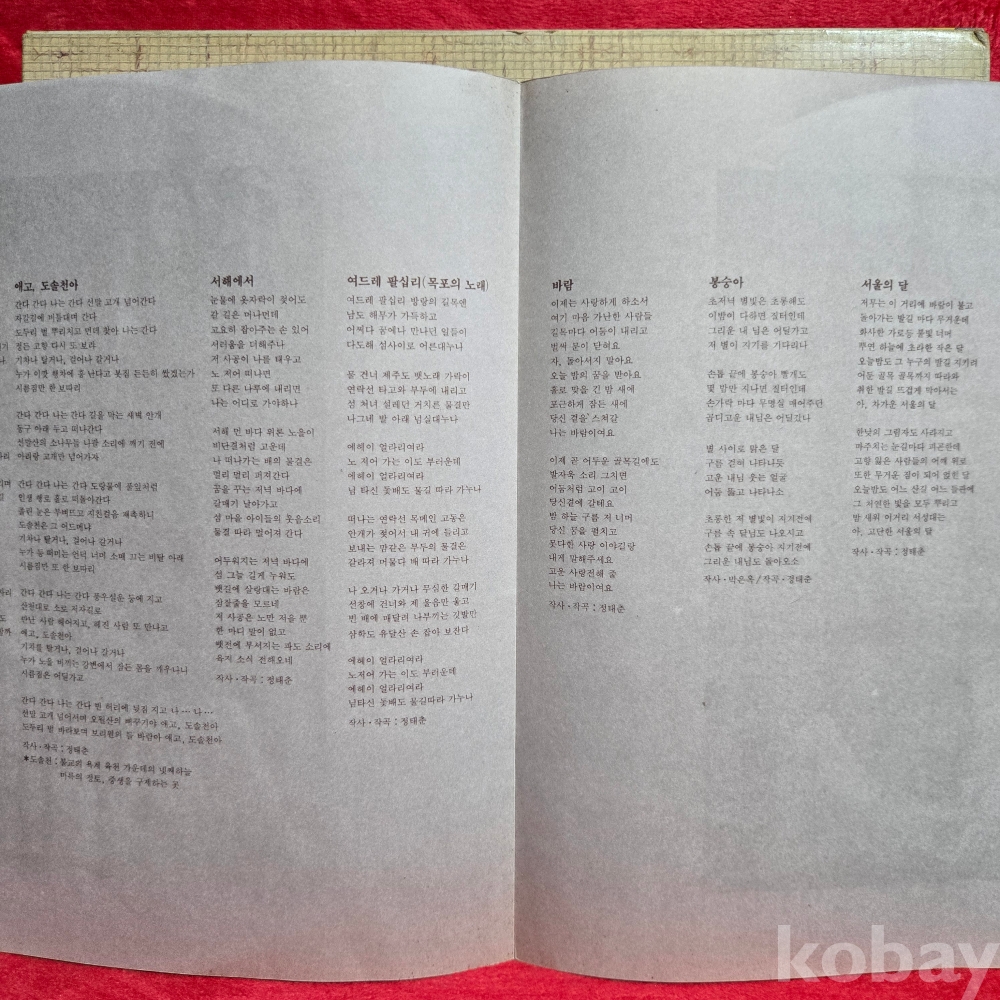 애고, 도솔천아
간다 간다 나는 간다 선말 고개 넘어간다
자갈길에 비틀대며 간다
도두리 벌 뿌리치고 먼데 찾아 나는 간다
정든 고향 다시 또 보랴
기차나 탈거나, 걸어나 갈거나
누가 이깟 행차에 흥 난다고 봇짐 든든히 쌌겠는가
시름짐만 한 보따리
간다 간다 나는 간다 길을 막는 새벽 안개
동구 아래 두고 떠나간다
선말산의 소나무들 나팔 소리에 깨기 전에
아리랑 고개만 넘어가자
간다 간다 나는 간다 도랑물에 풀잎처럼
인생 행로 홀로 떠돌아간다
졸린 눈은 부벼뜨고 지친걸음 재촉하니
도솔천은 그 어드메냐
기차나 탈거나, 걸어나 갈거나
누가 등 떼미는 언덕 너머 소매 끄는 비탈 아래
시름짐만 또 한 보따리
간다 간다 나는 간다 풍우설운 등에 지고
산천대로 소로 저자길로
만난 사람 헤어지고, 헤진 사람 또 만나고
애고, 도솔천아
기차를 탈거나, 걸어나 갈거나
누가 노을 비끼는 강변에서 잠든 몸을 깨우나니
시름짐은 어딜가고
간다 간다 나는 간다 빈 허리에 뒷짐 지고 나 … 나 …
선말 고개 넘어서며 오월산의 뻐꾸기야 애고, 도솔천아
도두리 벌 바라보며 보리원의 들 바람아 애고, 도솔천아
작사·작곡 : 정태춘
*도솔천 : 불교의 욕계 육천 가운데의 넷째하늘
미륵의 정토, 중생을 구제하는 곳
서해에서
눈물에 옷자락이 젖어도
갈 길은 머나먼데
고요히 잡아주는 손 있어
서러움을 더해주나
저 사공이 나를 태우고
노 저어 떠나면
또 다른 나루에 내리면
나는 어디로 가야하나
서해 먼 바다 위론 노을이
비단결처럼 고운데
나 떠나가는 배의 물결은
멀리 멀리 퍼져간다
꿈을 꾸는 저녁 바다에
갈매기 날아가고
섬 마을 아이들의 웃음소리
물결 따라 멀어져 간다
어두워지는 저녁 바다에
섬 그늘 길게 누워도
뱃길에 살랑대는 바람은
잠잘줄을 모르네
저 사공은 노만 저을 뿐
한 마디 말이 없고
뱃전에 부서지는 파도 소리에
육지 소식 전해오네
작사·작곡 : 정태춘
여드레 팔십리(목포의 노래)
여드레 팔십리 방랑의 길목엔
남도 해무가 가득하고
어쩌다 꿈에나 만나던 일들이
다도해 섬사이로 어른대누나
물 건너 제주도 뱃노래 가락이
연락선 타고와 부두에 내리고
섬 처녀 설레던 거치른 물결만
나그네 발 아래 넘실대누나
에헤이 얼라리여라
노 저어 가는 이도 부러운데
에헤이 얼라리여라
님 타신 꽃배도 물길 따라 가누나
떠나는 연락선 목메인 고동은
안개가 젖어서 내 귀에 들리고
보내는 맘같은 부두의 물결은
갈라져 머물다 배 따라 가누나
나 오거나 가거나 무심한 갈매기
선창에 건너와 제 울음만 울고
빈 배에 매달려 나부끼는 깃발만
삼학도 유달산 손 잡아 보잔다
에헤이 얼라리여라
노저어 가는 이도 부러운데
에헤이 얼라리여라
님타신 꽃배도 물길따라 가누나
작사·작곡 : 정태춘
바람
이제는 사랑하게 하소서
여기 마음 가난한 사람들
길목마다 어둠이 내리고
벌써 문이 닫혀요
자, 돌아서지 말아요
오늘 밤의 꿈을 받아요
홀로 맞을 긴 밤 새에
포근하게 잠든 새에
당신 곁을 스쳐갈
나는 바람이여요
이제 곧 어두운 골목길에도
발자욱 소리 그치면
어둠처럼 고이 고이
당신곁에 갈테요
밤 하늘 구름 저 너머
당신 꿈을 펼치고
못다한 사랑 이야길랑
내게 말해주세요
고운 사랑전해 줄
나는 바람이여요
작사·작곡 : 정태춘
봉숭아
초저녁 별빛은 초롱해도
이밤이 다하면 질터인데
그리운 내 님은 어딜가고
저 별이 지기를 기다리나
손톱 끝에 봉숭아 빨개도
몇 밤만 지나면 질터인데
손가락 마다 무명실 매어주던
곱디고운 내님은 어딜갔나
별 사이로 맑은 달
구름 걷혀 나타나듯
고운 내님 웃는 얼굴
어둠 뚫고 나타나소
초롱한 저 별빛이 지기전에
구름 속 달님도 나오시고
손톱 끝에 봉숭아 지기전에
그리운 내님도 돌아오소
작사·박은옥/작곡·정태춘
서울의 달
저무는 이 거리에 바람이 불고
돌아가는 발길 마다 무거운데
화사한 가로등 불빛 너머
뿌연 하늘에 초라한 작은 달
오늘밤도 그 누구의 발길 지키려
어둔 골목 골목까지 따라와
취한 발길 뜨겁게 막아서는
아, 차가운 서울의 달
한낮의 그림자도 사라지고
마주치는 눈길마다 피곤한데
고향 잃은 사람들의 어깨 위로
또한 무거운 짐이 되어 얹힌 달
오늘밤도 어느 산길 어느 들판에
그 처연한 빛을 모두 뿌리고
밤 새워 이거리 서성대는
아, 고단한 서울의 달
작사·작곡 : 정태춘
kobay